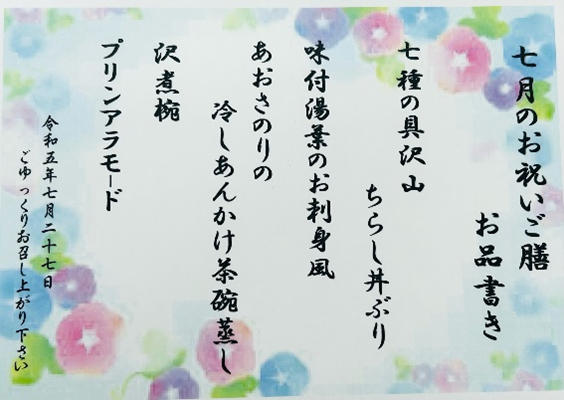 七月のお祝いご膳
お品書き
七種の具沢山
ちらし丼ぶり
味付湯葉のお刺身風
あおさのりの
冷しあんかけ茶碗蒸し
沢煮椀
プリンアラモード
令和五年七月二十七日
ごゆっくりお召し上がり下さい